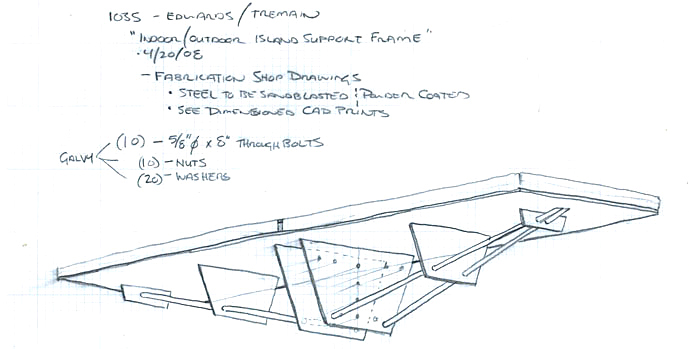 1035 - EDWARDS/TREMAIN
"INDOOR/OUTDOOR ISLAND SUPPORT FRAME"
· 4/20/08
- FABRICATION SHOP DRAWINGS
• STEEL TO BE SANDBLASTED & POWDER COATED
• SEE DIMENSIONED CAD PRINTS
(10) - 5/8"ϕ x 8" THROUGHBOLTS
GALV
(10) - NUTS
(20) - WASHERS